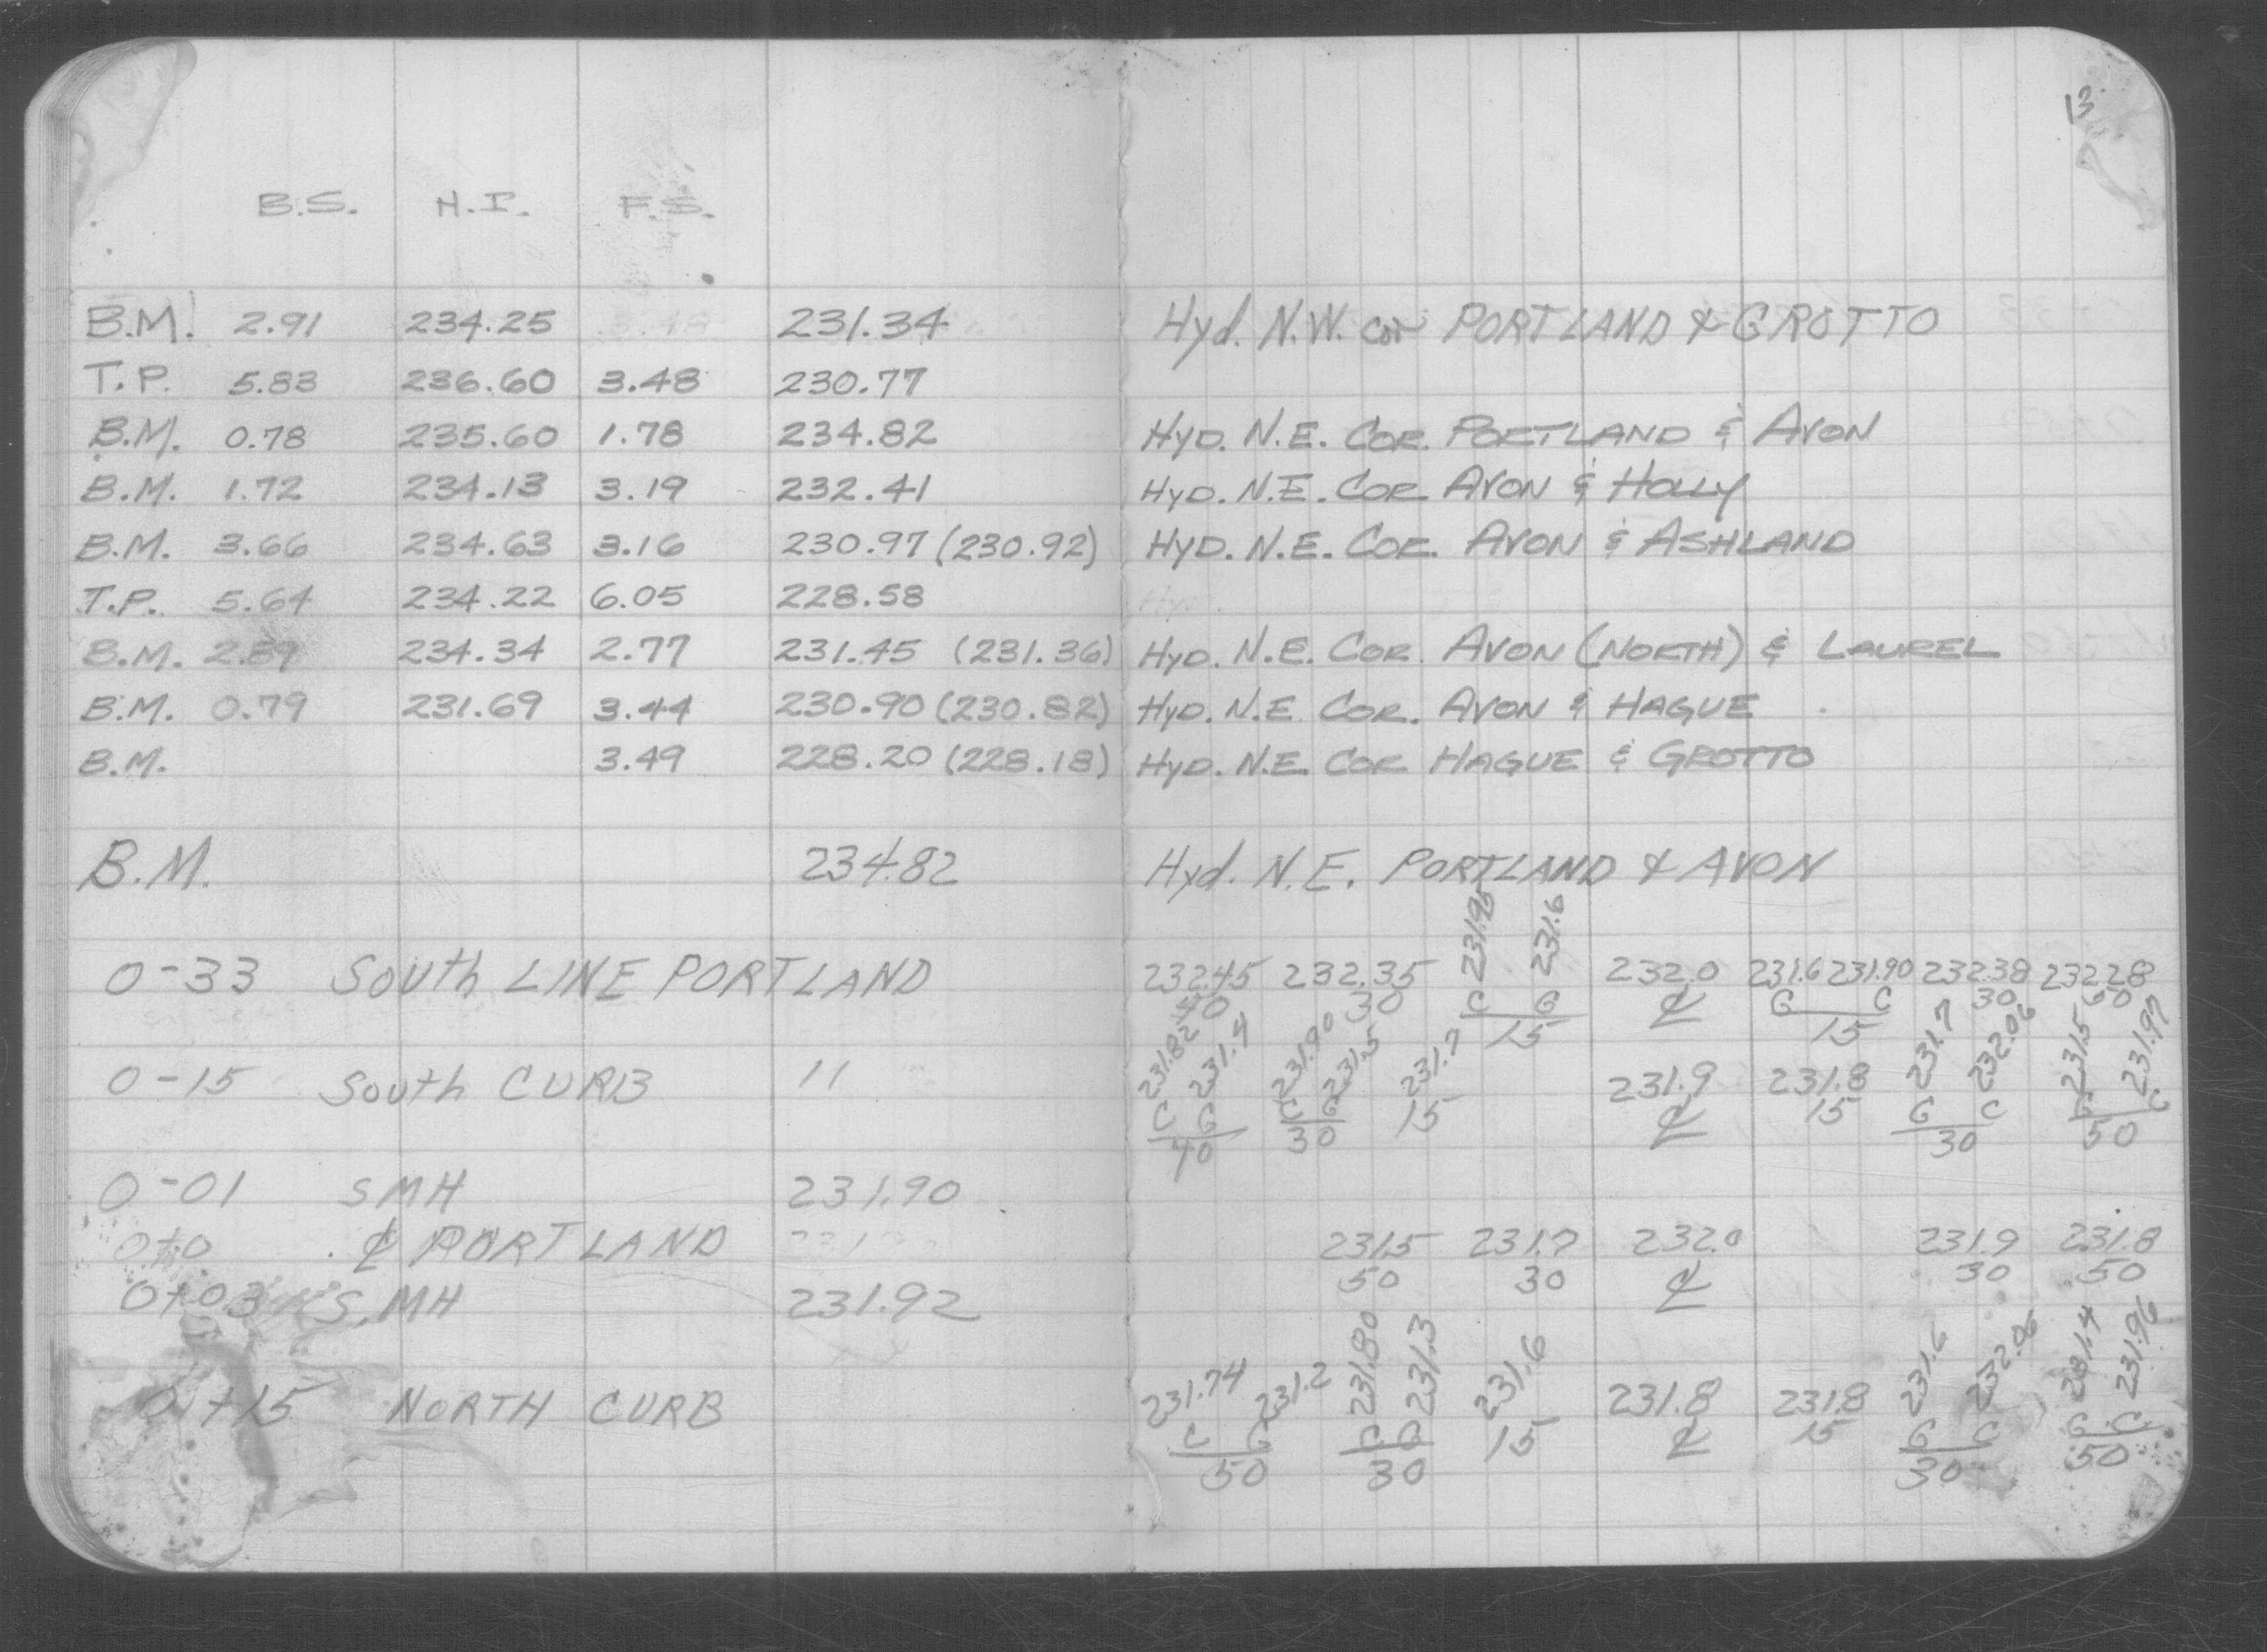 13
B.S. H.I. F.S.
B.M. 2.91 234.25 231.34 Hyd. N.W. cor PORTLAND & GROTTO
T.P. 5.83 236.60 3.48 230.77
B.M. 0.78 235.60 1.78 234.82 HYD. N.E. COR. PORTLAND & AVON
B.M. 1.72 234.13 3.19 232.41 HYD. N.E. COR AVON & HOLLY
B.M. 3.66 234.63 3.16 230.97 (230.92) HYD. N.E. COR. AVON & ASHLAND
T.P. 5.64 234.22 6.05 228.58
B.M. 2.89 234.34 2.77 231.45 (231.36) HYD. N.E. COR. AVON (NORTH) & LAUREL
B.M. 0.79 231.69 3.44 230.90 (230.82) HYD. N.E. COR. AVON & HAGUE
B.M. 3.49 228.20 (228.18) HYD. N.E. COR HAGUE & GROTTO
B.M. 234.82 Hyd. N.E. PORTLAND & AVON
0-33 South LINE PORTLAND 232.45 232.35 231.95 231.6 232.0 231.6 231.90 232.38 232.28
30 C G ℄ G C 30
15 15
0-15 South CURB 11 231.82 231.4 231.90 231.5 231.7 231.9 231.8 231.7 232.06 231.5 231.97
C G C G 15 ℄ 15 G C G C
40 30 30 50
0-01 SMH 231.90
0+0 ℄ PORTLAND 231.5 231.7 232.0 231.9 231.8
50 30 ℄ 30 50
0+03 S.MH 231.92
0+15 NORTH CURB 231.74 231.2 231.80 231.3 231.6 231.8 231.8 231.6 232.06 231.4 231.96
C G C G 15 ℄ 15 G C G C
50 30 30 50